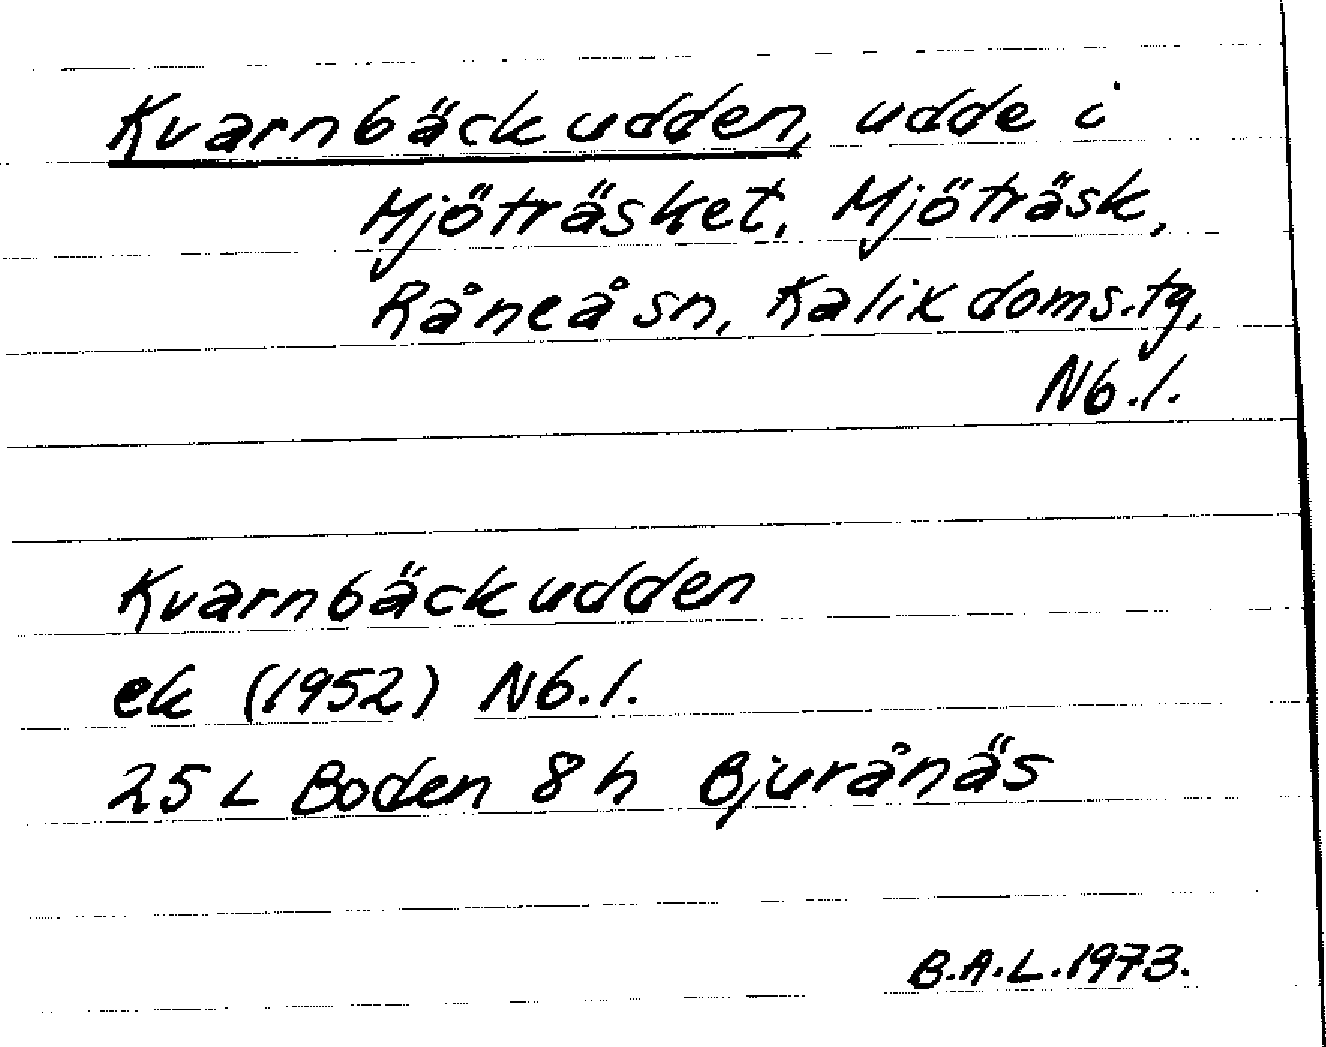 Kvarnbäckudden, udde i
Mjöträsket, Mjöträsk,
Råneå sn, Kalix doms.tg,
Nb.l.
Kvarnbäckudden
ek (1952) Nb.l.
25 L Boden 8 h Bjurånäs
B.A.L.1973.